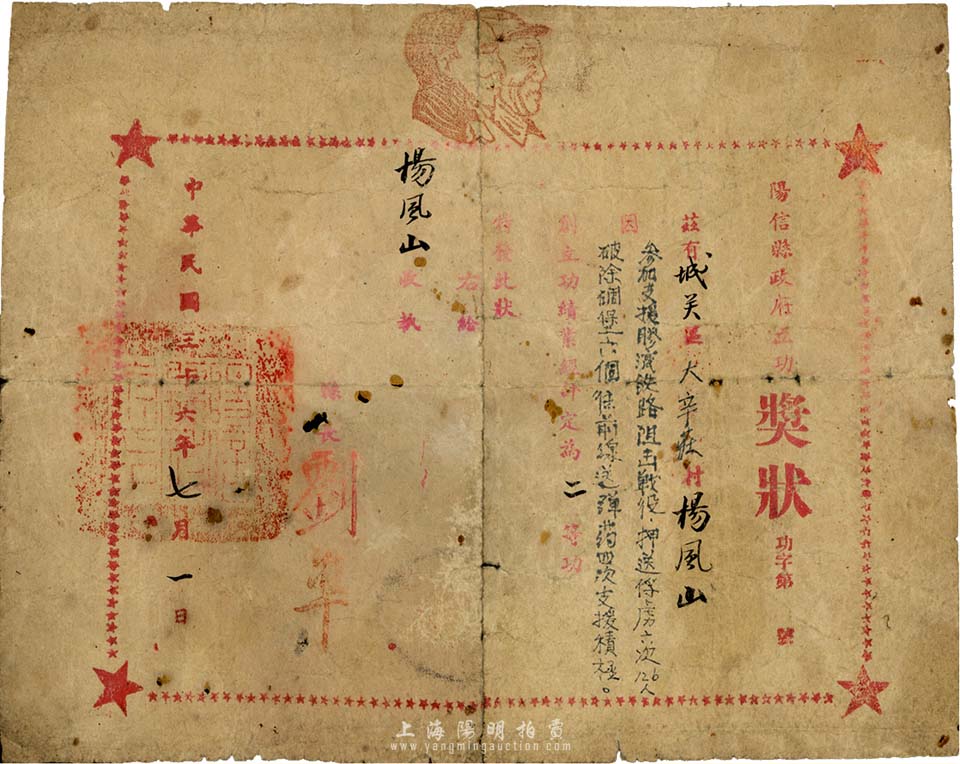 陽信縣政府立功獎狀 功字第 號
茲有城关區大辛莊村楊風山
因參加支援膠濟鉄路阻击戰役，押送俘虜六次126人
破除碉堡六個往前線送彈葯四次支援積极。
創立功績業經評定為二等功
特發此狀
右給
楊風山收執
縣長劉
中華民國三十六年七月一日
上海陽明拍賣
www.yangmingauction.com